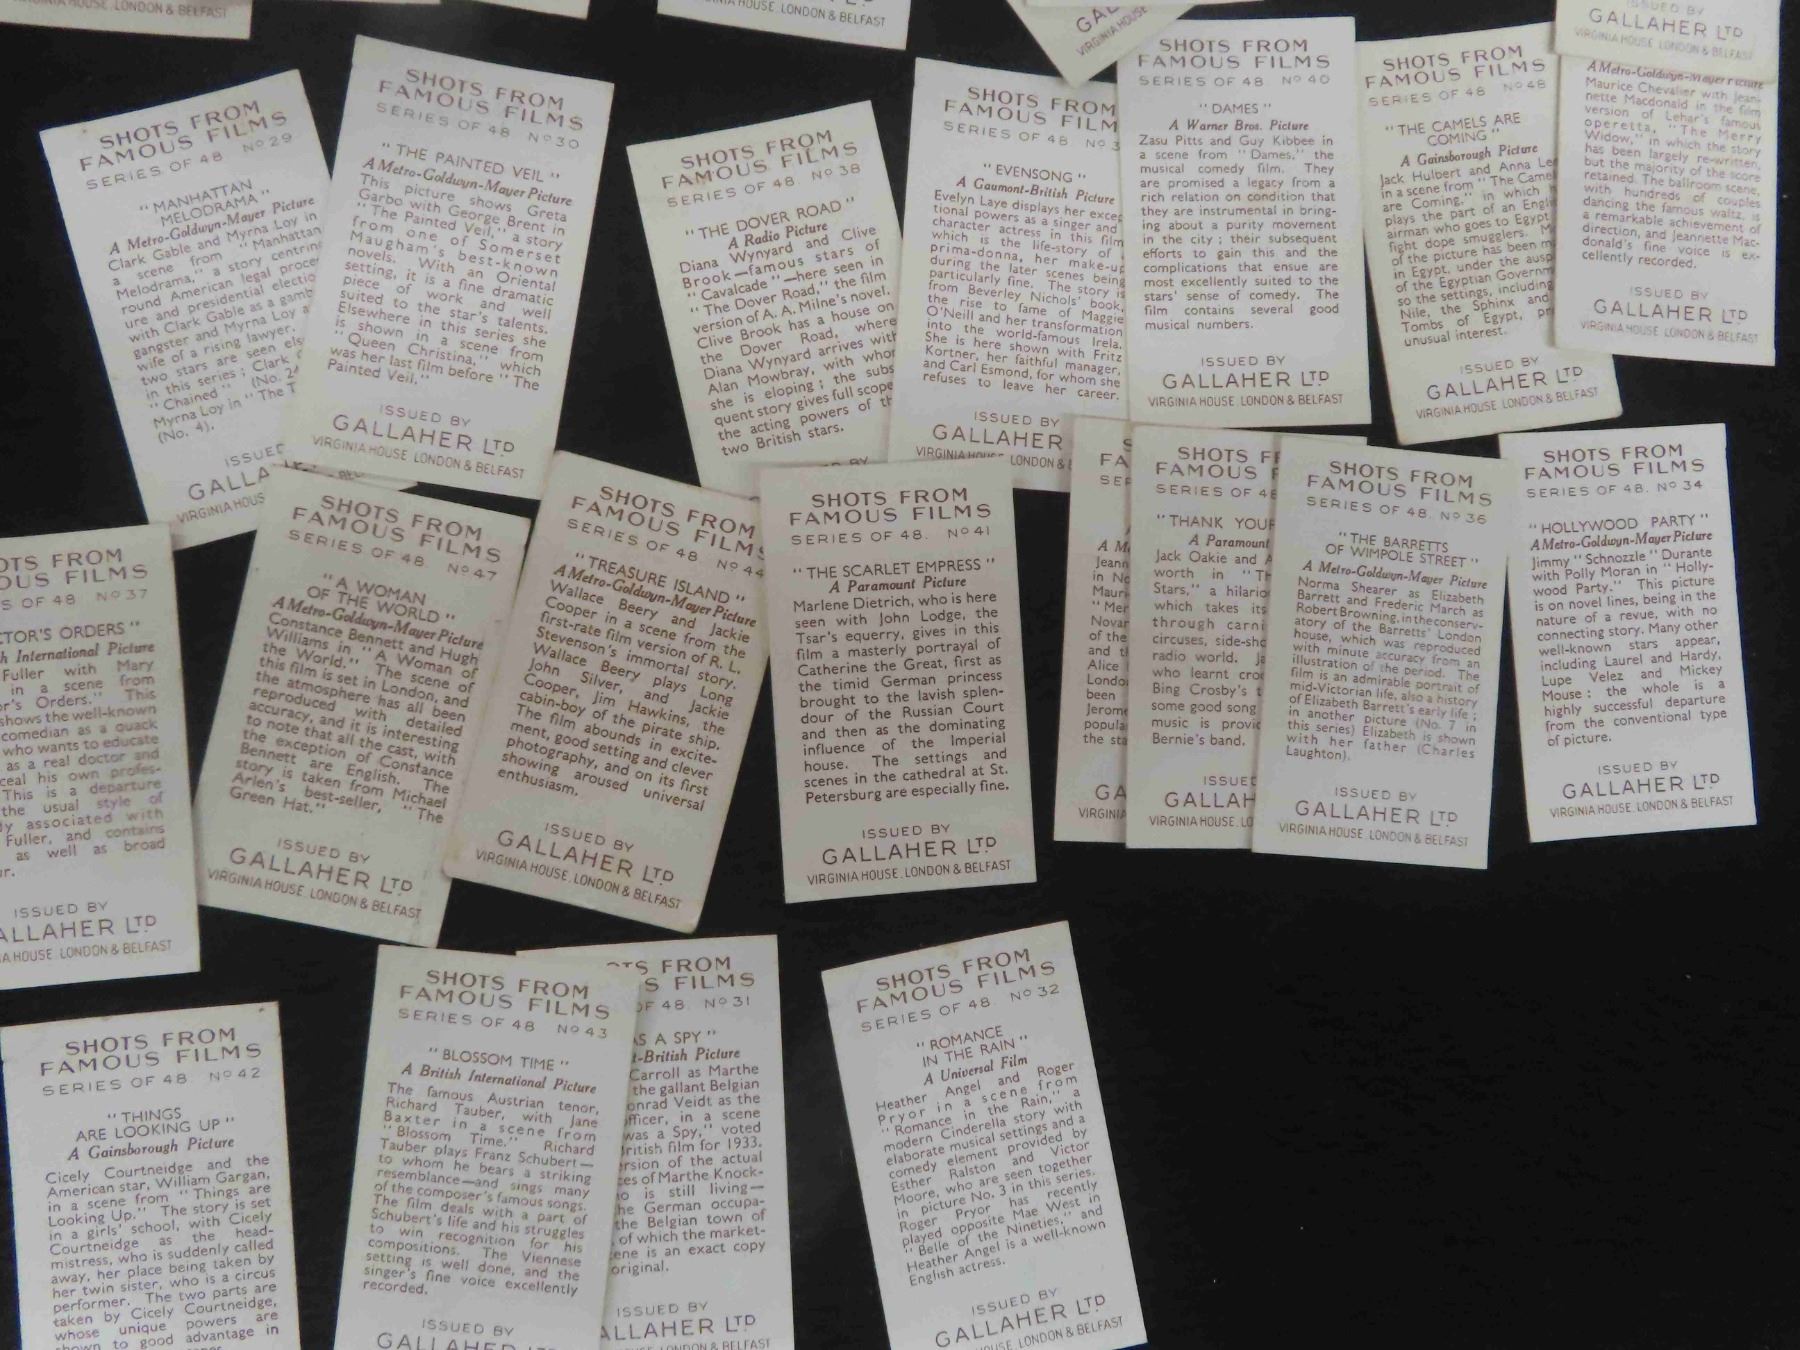 VIRGINIA HOUSE, LONDON & BELFAST
VIRGINIA HOUSE, LONDON & BELFAST
VIRGINIA HOUSE
SHOTS FROM
FAMOUS FILMS
SERIES OF 48 No 29
"MANHATTAN
MELODRAMA"
A Metro-Goldwyn-Mayer Picture
Clark Gable and Myrna Loy in
a scene from "Manhattan
Melodrama," a story
round American legal
ure and presidential
with Clark Gable as a
gangster and Myrna Loy
wife of a rising lawyer.
two stars are seen
in this series; Clark
"Chained" (No.
Myrna Loy in "The
(No. 4).
ISSUED
VIRGINIA
SHOTS FROM
FAMOUS FILMS
SERIES OF 48 No 30
"THE PAINTED VEIL"
A Metro-Goldwyn-Mayer Picture
This picture shows Greta
Garbo with George Brent in
"The Painted Veil," a story
from one of Somerset
Maugham's best-known
novels. With an Oriental
setting, it is a fine dramatic
piece of work and well
suited to the star's talents.
Elsewhere in this series she
is shown in a scene from
"Queen Christina," which
was her last film before "The
Painted Veil."
ISSUED BY
GALLAHER LTD
VIRGINIA HOUSE, LONDON & BELFAST
SHOTS FROM
FAMOUS FILMS
SERIES OF 48. No 38
"THE DOVER ROAD"
A Radio Picture
Diana Wynyard and Clive
Brook—famous stars of
"Cavalcade"—here seen in
"The Dover Road," the film
version of A. A. Milne's novel.
Clive Brook has a house on
the Dover Road, where
Diana Wynyard arrives with
Alan Mowbray, with
she is eloping; the
quent story gives full scope
the acting powers of
two British stars.
BY
SHOTS FROM
FAMOUS
SERIES OF 48 No
"EVENSONG"
A Gaumont-British Picture
Evelyn Laye displays her
tional powers as a singer and
character actress in this film
which is the life-story of
prima-donna, her make-up
during the later scenes being
particularly fine. The story is
from Beverley Nichols' book,
the rise to fame of Maggie
O'Neill and her transformation
into the world-famous Irela.
She is here shown with Fritz
Kortner, her faithful manager,
and Carl Esmond, for whom she
refuses to leave her career.
ISSUED BY
GALLAHER
LONDON &
SHOTS FROM
FAMOUS FILMS
SERIES OF 48 No 40
"DAMES"
A Warner Bros. Picture
Zasu Pitts and Guy Kibbee in
a scene from "Dames," the
musical comedy film. They
are promised a legacy from a
rich relation on condition that
they are instrumental in bring-
ing about a purity movement
in the city; their subsequent
efforts to gain this and the
complications that ensue are
most excellently suited to the
stars' sense of comedy. The
film contains several good
musical numbers.
ISSUED BY
GALLAHER LTD
VIRGINIA HOUSE, LONDON & BELFAST
SHOTS FROM
FAMOUS FILMS
SERIES OF 48 No 48
"THE CAMELS ARE
COMING"
A Gainsborough Picture
Jack Hulbert and Anna
in a scene from "The
are Coming," in which
plays the part of an
airman who goes to Egypt
fight dope smugglers.
of the picture has been
in Egypt, under the
of the Egyptian
so the settings, including
Nile, the Sphinx and
Tombs of Egypt,
unusual interest.
ISSUED BY
GALLAHER LTD
VIRGINIA HOUSE, LONDON & BELFAST
ISSUED BY
GALLAHER LTD
VIRGINIA HOUSE, LONDON & BELFAST
A Metro-Goldwyn-Mayer Picture
Maurice Chevalier with Jean-
nette Macdonald in the film
version of Lehar's famous
operetta, "The Merry
Widow," in which the story
has been largely re-written,
but the majority of the score
retained. The ballroom scene,
with hundreds of couples
dancing the famous waltz, is
a remarkable achievement of
direction, and Jeannette Mac-
donald's fine voice is ex-
cellently recorded.
ISSUED BY
GALLAHER LTD
VIRGINIA HOUSE, LONDON & BELFAST
FROM
FILMS
OF 48 No 37
ORDERS"
International Picture
Fuller with Mary
in a scene from
Orders." This
shows the well-known
comedian as a quack
who wants to educate
as a real doctor and
his own profes-
This is a departure
the usual style of
associated with
Fuller, and contains
as well as broad
ISSUED BY
GALLAHER LTD
HOUSE, LONDON & BELFAST
SHOTS FROM
FAMOUS FILMS
SERIES OF 48 No 47
"A WOMAN
OF THE WORLD"
A Metro-Goldwyn-Mayer Picture
Constance Bennett and Hugh
Williams in "A Woman of
the World." The scene of
this film is set in London, and
the atmosphere has all been
reproduced with detailed
accuracy, and it is interesting
to note that all the cast, with
the exception of Constance
Bennett are English. The
story is taken from Michael
Arlen's best-seller, "The
Green Hat."
ISSUED BY
GALLAHER LTD
VIRGINIA HOUSE, LONDON & BELFAST
SHOTS FROM
FAMOUS FILMS
SERIES OF 48 No 44
"TREASURE ISLAND"
A Metro-Goldwyn-Mayer Picture
Wallace Beery and Jackie
Cooper in a scene from the
first-rate film version of R. L.
Stevenson's immortal story.
Wallace Beery plays Long
John Silver, and Jackie
Cooper, Jim Hawkins, the
cabin-boy of the pirate ship.
The film abounds in excite-
ment, good setting and clever
photography, and on its first
showing aroused universal
enthusiasm.
ISSUED BY
GALLAHER LTD
VIRGINIA HOUSE, LONDON & BELFAST
SHOTS FROM
FAMOUS FILMS
SERIES OF 48. No 41
"THE SCARLET EMPRESS"
A Paramount Picture
Marlene Dietrich, who is here
seen with John Lodge, the
Tsar's equerry, gives in this
film a masterly portrayal of
Catherine the Great, first as
the timid German princess
brought to the lavish splen-
dour of the Russian Court
and then as the dominating
influence of the Imperial
house. The settings and
scenes in the cathedral at St.
Petersburg are especially fine.
ISSUED BY
GALLAHER LTD
VIRGINIA HOUSE, LONDON & BELFAST
A
in
of the
and
Alice
been
Jerome
the
SHOTS
FAMOUS
SERIES OF
"THANK YOUR
A Paramount
Jack Oakie and
worth in
Stars," a
which takes its
through
circuses,
radio world.
who learnt
Bing Crosby's
some good song
music is
Bernie's band.
VIRGINIA HOUSE, LONDON
SHOTS FROM
FAMOUS FILMS
SERIES OF 48. No 36
"THE BARRETTS
OF WIMPOLE STREET"
A Metro-Goldwyn-Mayer Picture
Norma Shearer as Elizabeth
Barrett and Frederic March as
Robert Browning, in the conserv-
atory of the Barretts' London
house, which was reproduced
with minute accuracy from an
illustration of the period. The
film is an admirable portrait of
mid-Victorian life, also a history
of Elizabeth Barrett's early life;
in another picture (No. 7 in
this series) Elizabeth is shown
with her father (Charles
Laughton).
ISSUED BY
GALLAHER LTD
VIRGINIA HOUSE, LONDON & BELFAST
SHOTS FROM
FAMOUS FILMS
SERIES OF 48. No 34
"HOLLYWOOD PARTY"
A Metro-Goldwyn-Mayer Picture
Jimmy "Schnozzle" Durante
with Polly Moran in "Holly-
wood Party." This picture
is on novel lines, being in the
nature of a revue, with no
connecting story. Many other
well-known stars appear,
including Laurel and Hardy,
Lupe Velez and Mickey
Mouse: the whole is a
highly successful departure
from the conventional type
of picture.
ISSUED BY
GALLAHER LTD
VIRGINIA HOUSE, LONDON & BELFAST
SHOTS FROM
FAMOUS FILMS
SERIES OF 48. No 42
"THINGS
ARE LOOKING UP"
A Gainsborough Picture
Cicely Courtneidge and the
American star, William Gargan,
in a scene from "Things are
Looking Up." The story is set
in a girls' school, with Cicely
Courtneidge as the head-
mistress, who is suddenly called
away, her place being taken by
her twin sister, who is a circus
performer. The two parts are
taken by Cicely Courtneidge,
whose unique powers are
shown to good advantage in
SHOTS FROM
FAMOUS FILMS
SERIES OF 48 No 43
"BLOSSOM TIME"
A British International Picture
The famous Austrian tenor,
Richard Tauber, with Jane
Baxter in a scene from
"Blossom Time." Richard
Tauber plays Franz Schubert—
to whom he bears a striking
resemblance—and sings many
of the composer's famous songs.
The film deals with a part of
Schubert's life and his struggles
to win recognition for his
compositions. The Viennese
setting is well done, and the
singer's fine voice excellently
recorded.
ISSUED BY
GALLAHER LTD
FROM
FILMS
OF 48. No 31
A SPY"
British Picture
Carroll as Marthe
the gallant Belgian
Veidt as the
in a scene
was a Spy," voted
film for 1933.
of the actual
of Marthe Knock-
is still living—
German occupa-
the Belgian town of
of which the market-
is an exact copy
original.
ISSUED BY
GALLAHER LTD
HOUSE, LONDON & BELFAST
SHOTS FROM
FAMOUS FILMS
SERIES OF 48. No 32
"ROMANCE
IN THE RAIN"
A Universal Film
Heather Angel and Roger
Pryor in a scene from
"Romance in the Rain," a
modern Cinderella story with
elaborate musical settings and a
comedy element provided by
Esther Ralston and Victor
Moore, who are seen together
in picture No. 3 in this series.
Roger Pryor has recently
played opposite Mae West in
"Belle of the Nineties," and
Heather Angel is a well-known
English actress.
ISSUED BY
GALLAHER LTD
VIRGINIA HOUSE, LONDON & BELFAST